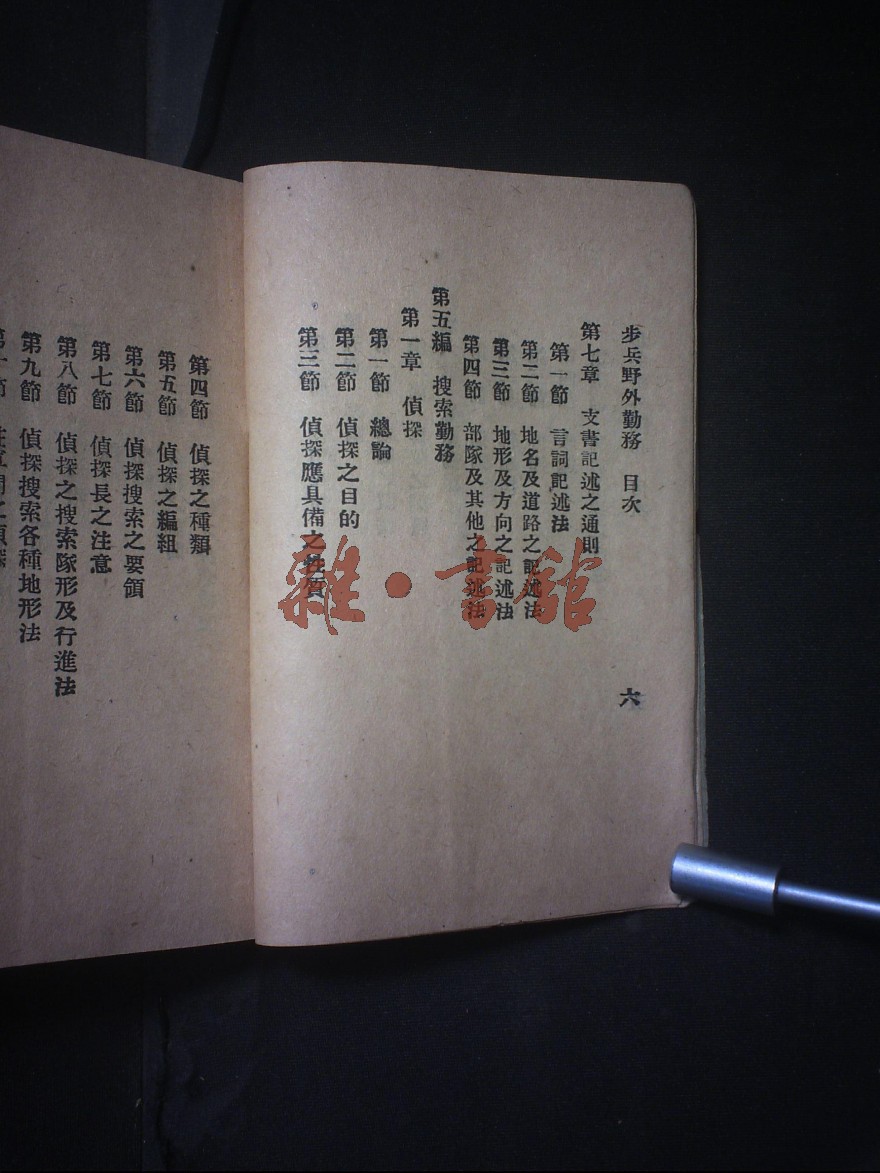 步兵野外勤務 目次
六
第七章 支書記述之通則
第一節 言詞記述法
第二節 地名及道路之記述法
第三節 地形及方向之記述法
第四節 部隊及其他之記述法
第五編 搜索勤務
第一章 偵探
第一節 總論
第二節 偵探之目的
第三節 偵探應具備之性質
第四節 偵探之種類
第五節 偵探之編組
第六節 偵探搜索之要領
第七節 偵探長之注意
第八節 偵探之搜索隊形及行進法
第九節 偵探搜索各種地形法
雜·書館